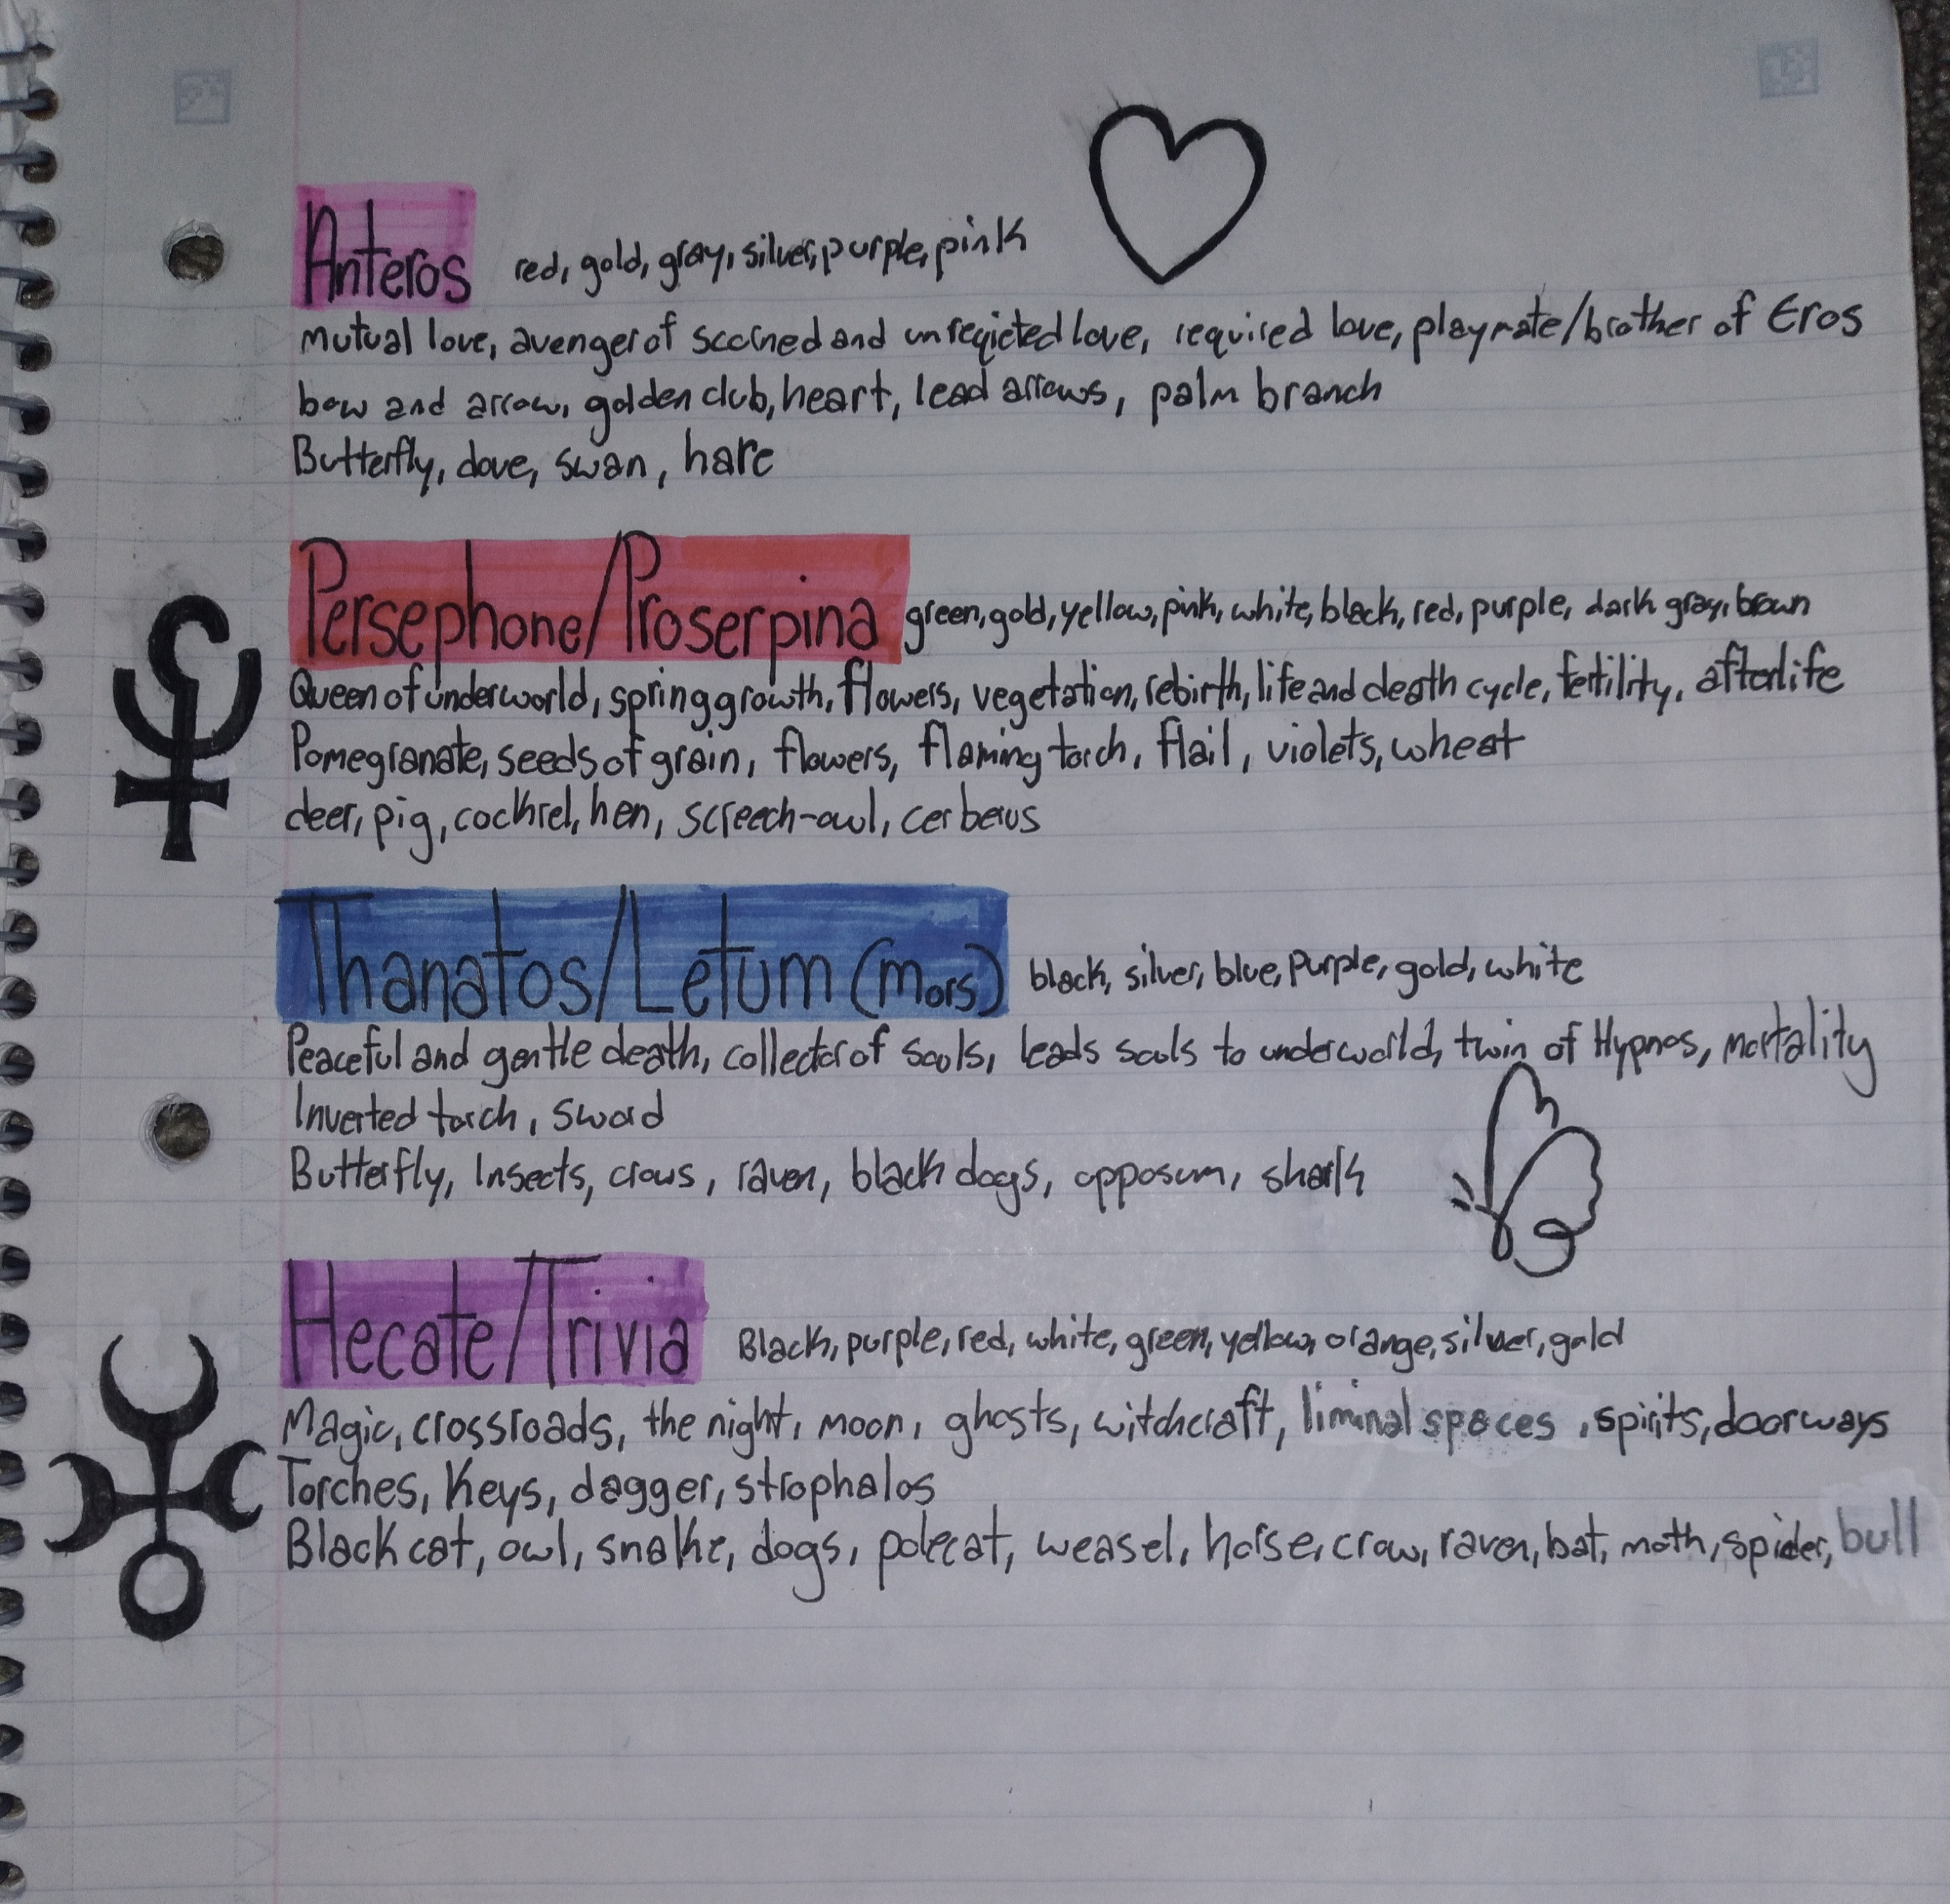 Anteros red, gold, gray, silver, purple, pink
Mutual love, avenger of scorned and unreqicted love, required love, playmate/brother of Eros
bow and arrow, golden club, heart, lead arrows, palm branch
Butterfly, dove, swan, hare
Persephone/Proserpina green, gold, yellow, pink, white, black, red, purple, dark gray, brown
Queen of underworld, spring growth, flowers, vegetation, rebirth, life and death cycle, fertility, afterlife
Pomegranate, seeds of grain, flowers, flaming torch, flail, violets, wheat
deer, pig, cockrel, hen, screech-owl, cerberus
Thanatos/Letum (Mors) black, silver, blue, purple, gold, white
Peaceful and gentle death, collector of souls, leads souls to underworld, twin of Hypnos, mortality
Inverted torch, sword
Butterfly, Insects, crows, raven, black dogs, opposum, shark
Hecate/Trivia Black, purple, red, white, green, yellow, orange, silver, gold
Magic, crossroads, the night, moon, ghosts, witchcraft, liminal spaces, spirits, doorways
Torches, Keys, dagger, strophalos
Black cat, owl, snake, dogs, polecat, weasel, horse, crow, raven, bat, moth, spider, bull